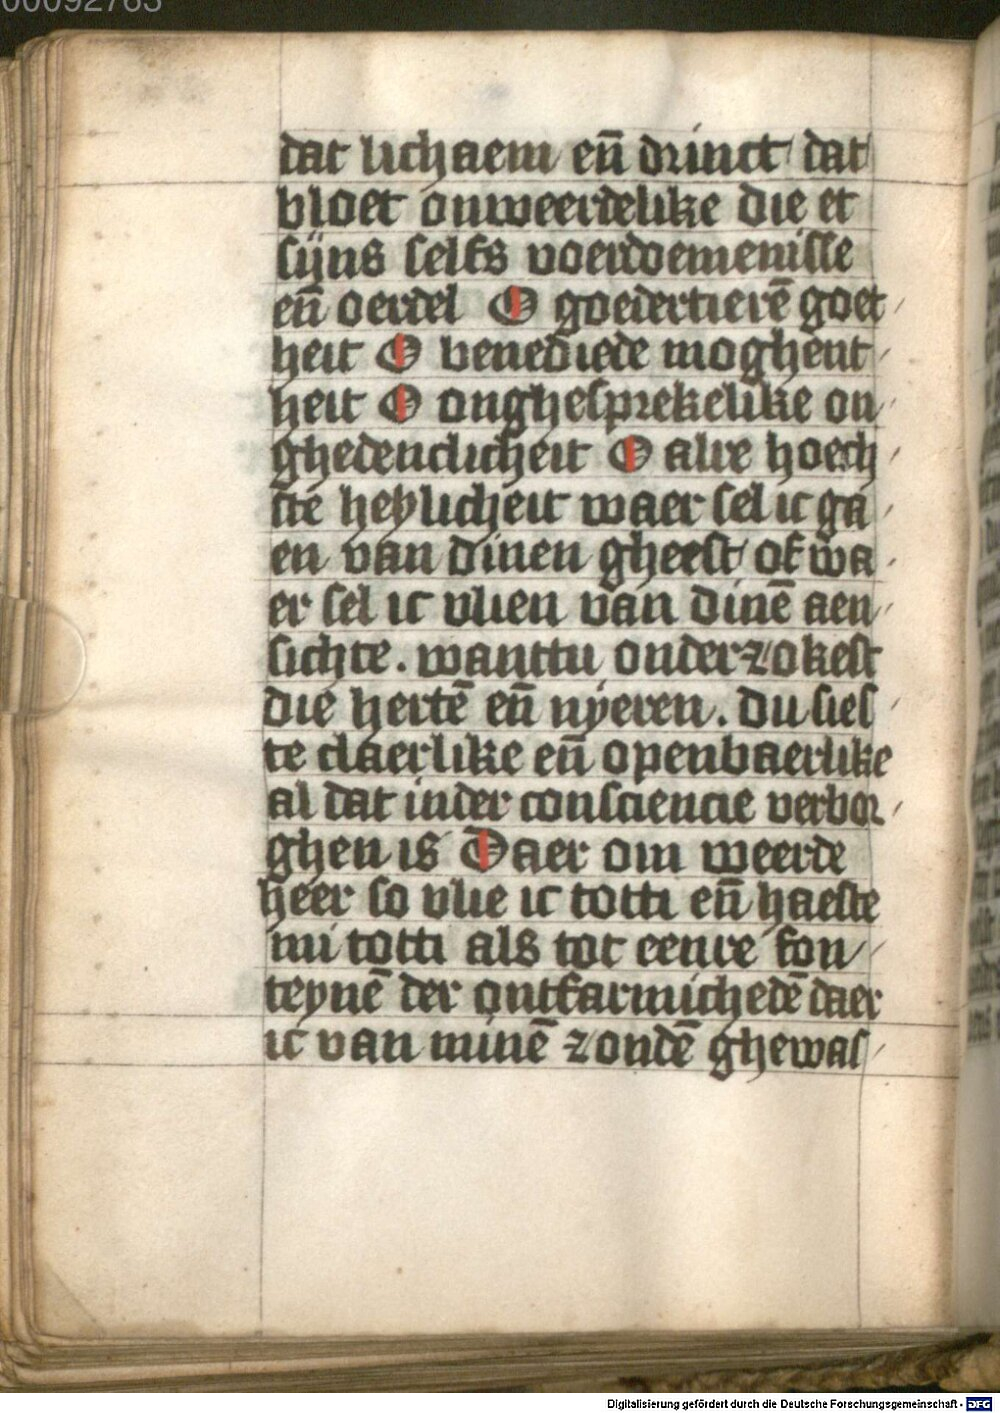 00092763
dat lichaem en̄ drinct dat
bloet onweerdelike die et
sijns selfs voerdoemenisse
en̄ oerdel O goedertierē goet
heit O benediede moghent
heit O onghesprekelike on
ghedenclicheit O alre hoech
ste heylicheit waer sel ic ga
en van dinen gheest of wa
er sel ic vlien van dinē aen
sichte. wanttu onderzokest
die hertē en̄ nyeren. Du sies
te claerlike en̄ openbaerlike
al dat inder consciencie verbor
ghen is Daer om weerde
heer so vlie ic totti en̄ haeste
mi totti als tot eenre fon
teynē der ontfarmichedē daer
ic van minē zondē ghewas
Digitalisierung gefördert durch die Deutsche Forschungsgemeinschaft - DFG